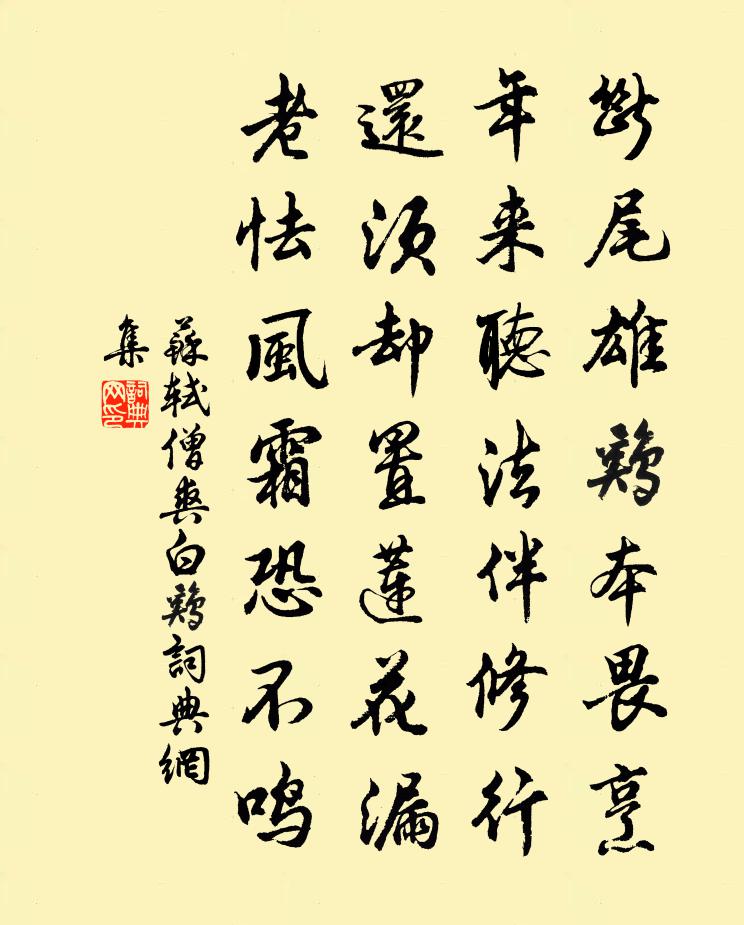 斷尾雄鷄本畏烹
年来聽法伴修行
還須却置蓮花漏
老怯風霜恐不鸣
蘇軾僧爽白鷄詞典網
集
詞典
网印